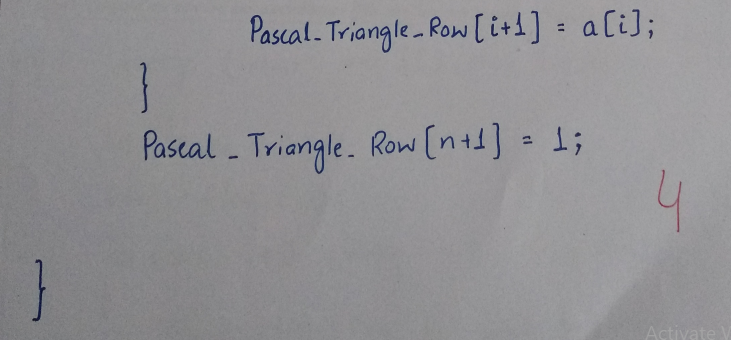 Pascal_Triangle_Row[i+1] = a[i];
}
Pascal_Triangle_Row[n+1] = 1;
4
}
Activate